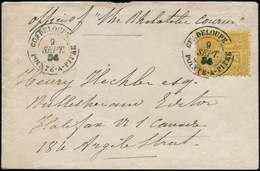 office of "The Philatelic Courier"
GUADELOUPE
9
SEPT.
POINTE-A-PITRE
GUADELOUPE
9
SEPT.
POINTE-A-PITRE
Henry Hechler esq.
Editor
Halifax
184 Argyle Street